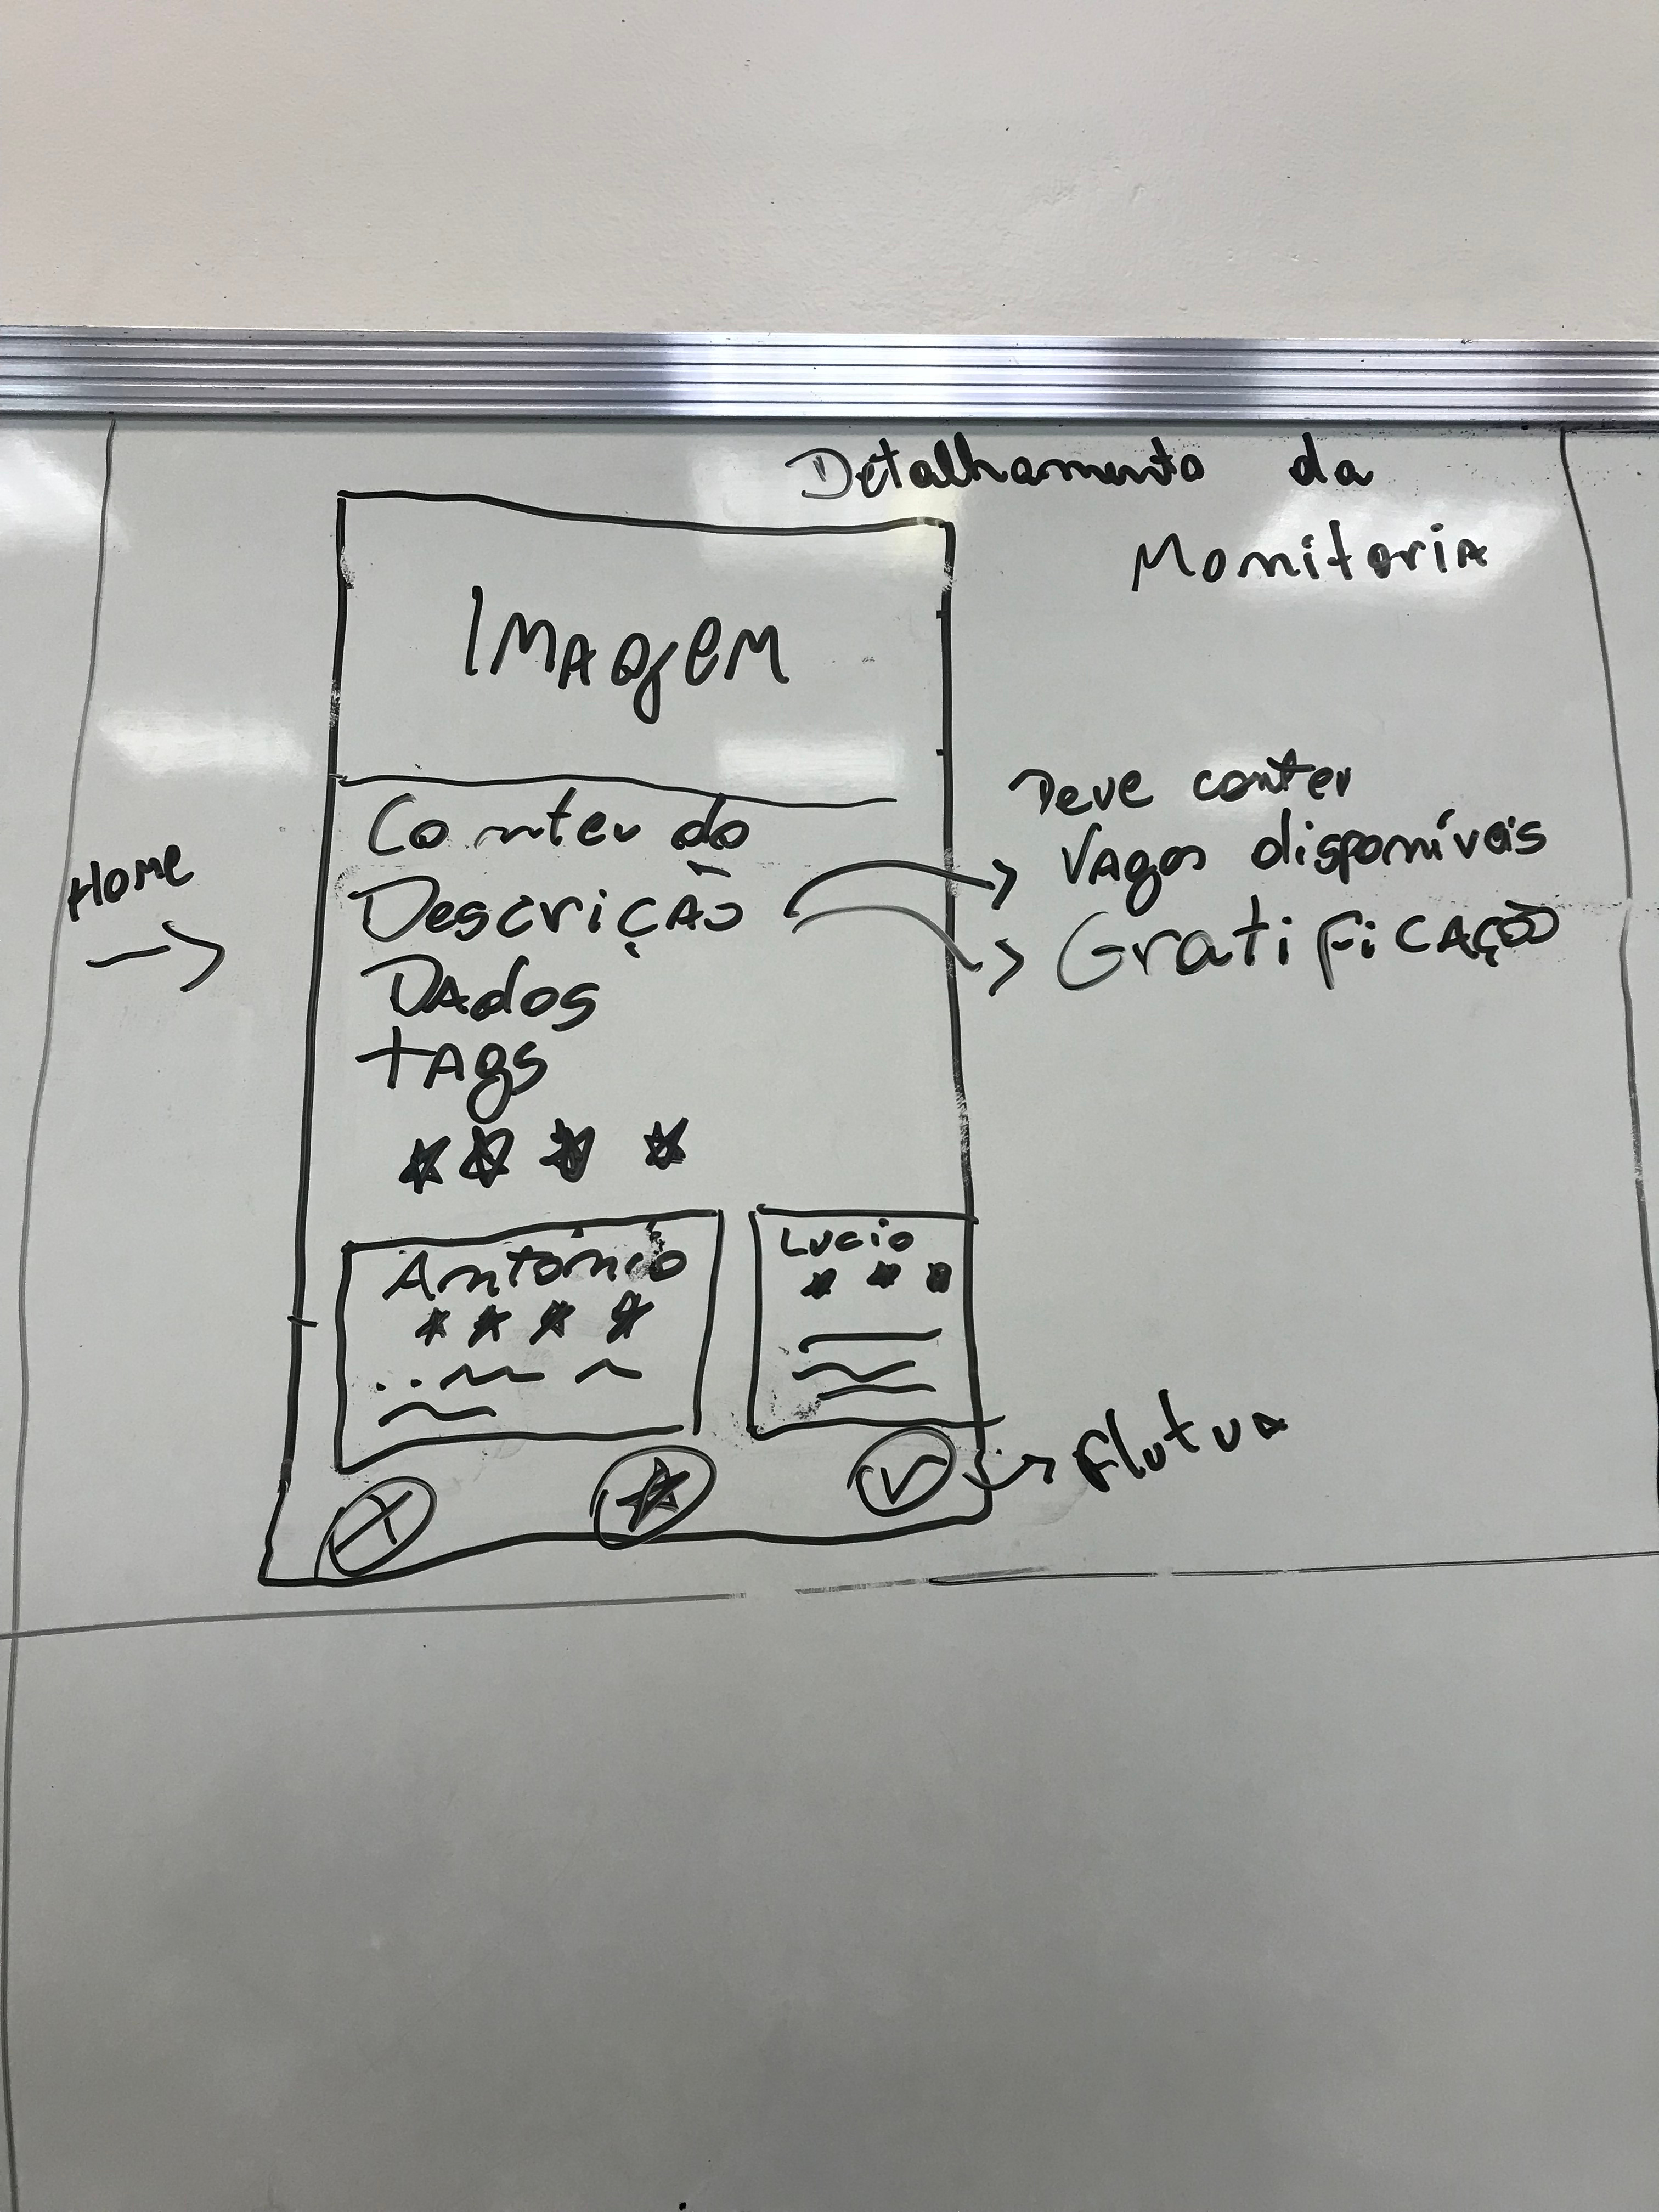 Detalhamento da
Monitoria
Imagem
Conteudo
Descrição
Dados
tags
Home
Deve conter
Vagas disponíveis
Gratificação
Antônio
Lucio
Flutua